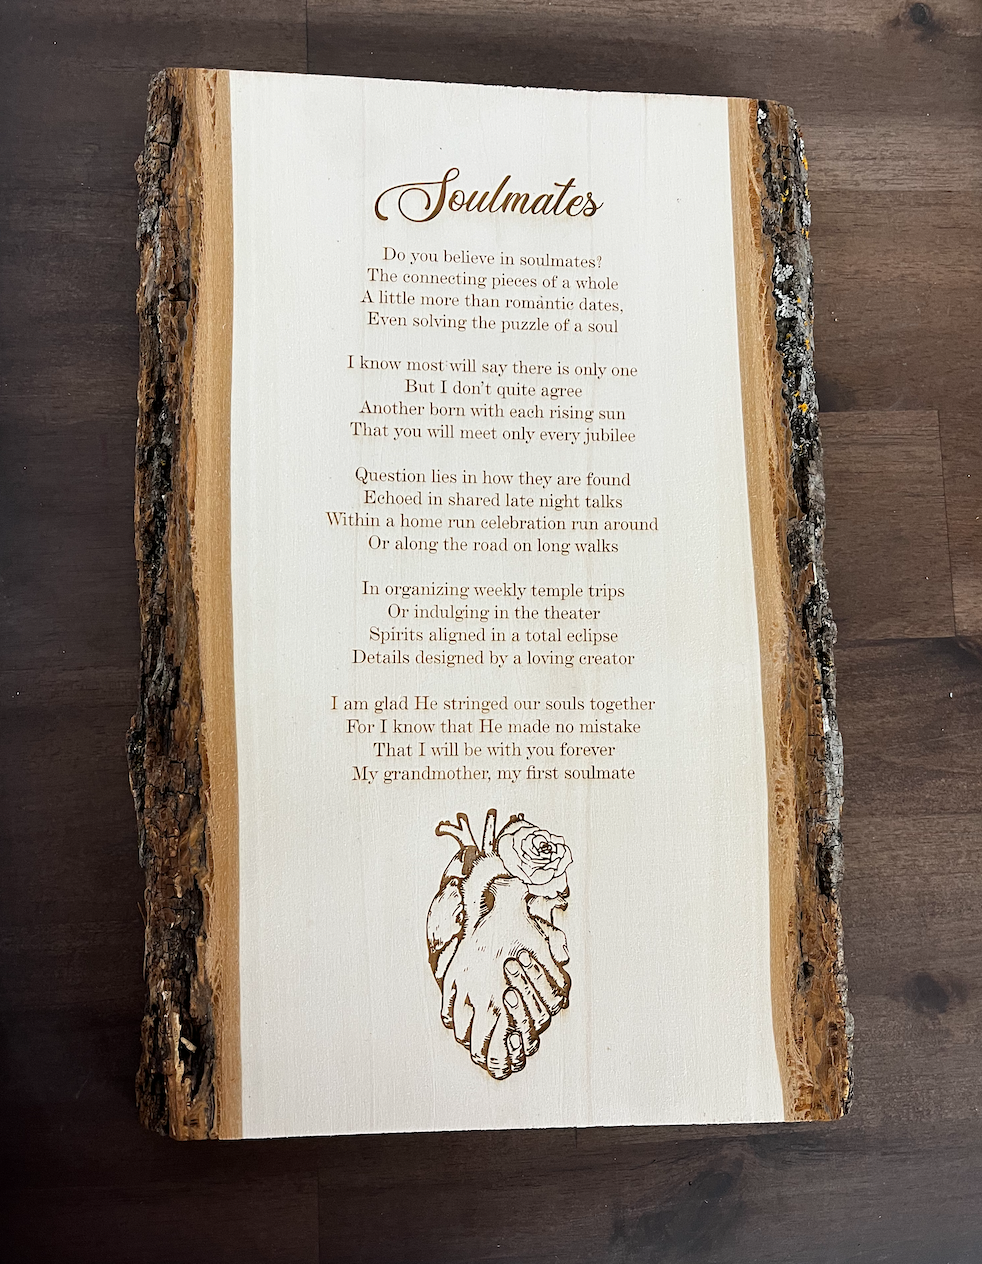 Soulmates
Do you believe in soulmates?
The connecting pieces of a whole
A little more than romantic dates,
Even solving the puzzle of a soul
I know most will say there is only one
But I don't quite agree
Another born with each rising sun
That you will meet only every jubilee
Question lies in how they are found
Echoed in shared late night talks
Within a home run celebration run around
Or along the road on long walks
In organizing weekly temple trips
Or indulging in the theater
Spirits aligned in a total eclipse
Details designed by a loving creator
I am glad He stringed our souls together
For I know that He made no mistake
That I will be with you forever
My grandmother, my first soulmate